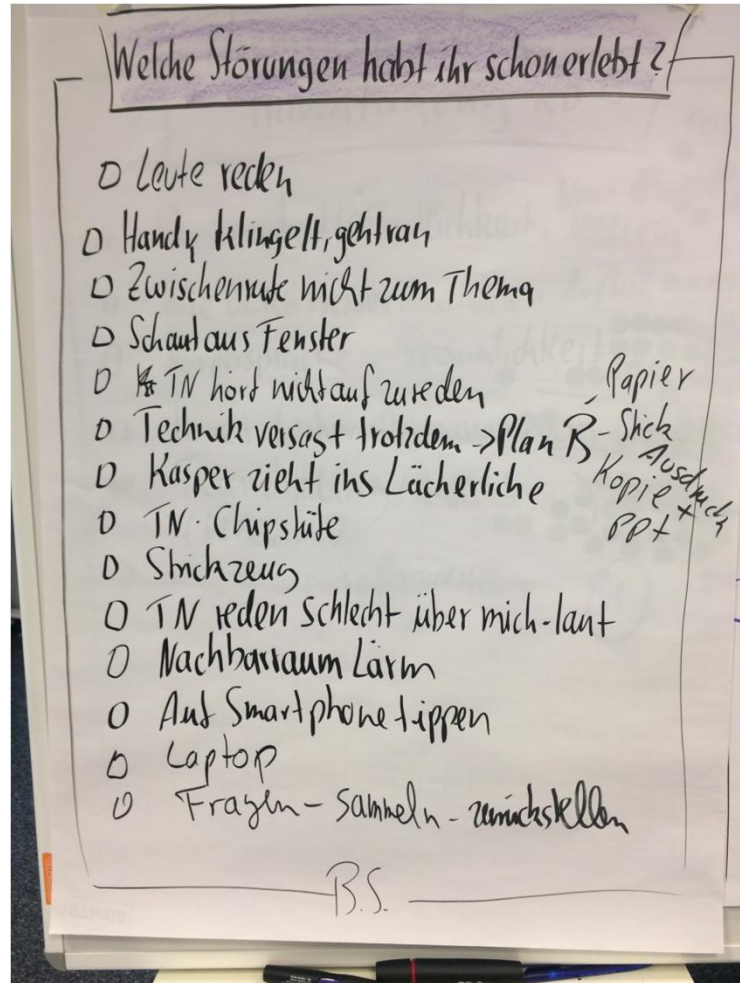 Welche Störungen habt ihr schon erlebt?
O Leute reden
O Handy klingelt, geht ran
O Zwischenrufe nicht zum Thema
O Schaut aus Fenster
O TN hört nicht auf zu reden
O Technik versagt trotzdem -> Plan B - Papier
- Stick
Ausdruck
Kopie +
PPt
O Kasper zieht ins Lächerliche
O TN. Chipstüte
O Strickzeug
O TN reden schlecht über mich - laut
O Nachbarraum Lärm
O Auf Smartphone tippen
O Laptop
O Fragen - Sammeln - zurückstellen
B.S.